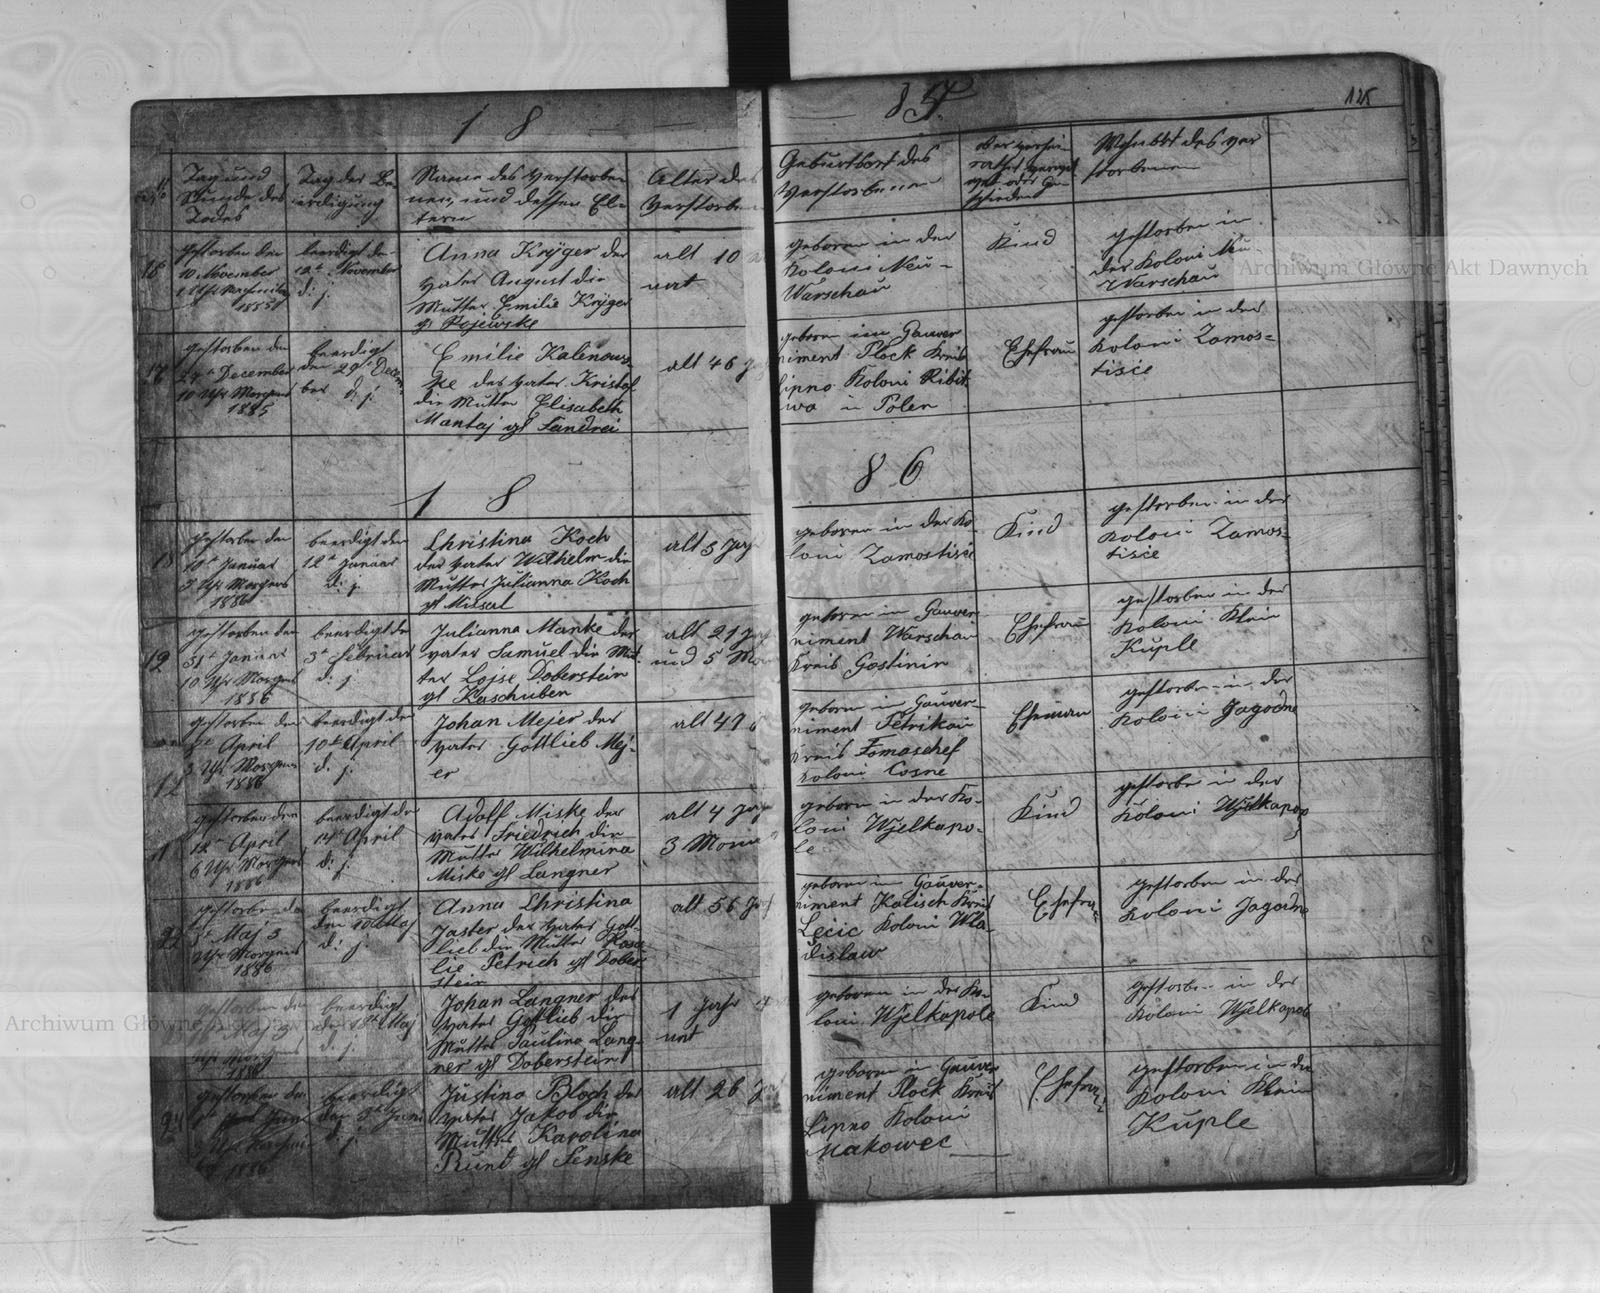 1 8
85.
125
Tag und
Stunde des
Todes
Tag der Be-
erdigung
Name des Verstorbe-
nen, und dessen El-
tern
Alter des
Verstorbe
Geburtsort des
Verstorbenen
Wohnort des ver
storbenen
16
gestorben den
10 November
1 Uhr Nachmittag
1885
beerdigt de
12t November
d: j.
Anna Krÿger der
Vater August die
Mutter Emilie Krÿger
gb Rojewske
alt 10
nat
geboren in der
Koloni Neu-
Warschau
Kind
gestorben in
der Koloni Neu-
Warschau
17
gestorben den
27t December
10 Uhr Morgens
1885
beerdigt
den 29t Decem
ber d. j.
Emilie Kalenows-
ke der Vater Kristof
die Mutter Elisabeth
Mantaj gb Fandrei
alt 46 J
geboren im Gauver
niment Plock Kreis
Lipno Koloni Ribit
wo in Polen
Ehefrau
gestorben in der
Koloni Zamos-
tisce
1 8
8 6
18
gestorben den
10t Januar
Uhr Morgens
1886
beerdigt den
12t Januar
d: j.
Christina Koch
der Vater Wilhelm die
Mutter Julianna Koch
gb Missal
alt 5 Jah
geboren in der Ko-
loni Zamostisce
Kind
gestorben in der
Koloni Zamos-
tisce
19
gestorben den
31t Januar
10 Uhr Morgens
1886
beerdigt de
3t Februar
d: j.
Julianna Manke der
Vater Samuel die Mut-
ter Lojse Doberstein
gb Kaschuben
alt 21 Jah
und 5 Mon
geboren in Gauver-
niment Warschau
Kreis Gostinin
Ehefrau
gestorben in der
Koloni Klein
Kuple
gestorben den
April
3 Uhr Morgens
1886
beerdigt den
10t April
d. j.
Johan Mejer der
Vater Gottlieb Mej-
er
alt 47
geboren in Gauver-
niment Petrikau
Kreis Tomaschef
Koloni Cosne
Eheman
gestorben in der
Koloni Jagodne
gestorben den
12t April
6 Uhr Morgens
1886
beerdigt de
14t April
d: j.
Adolf Miske der
Vater Friedrich die
Mutter Wilhelmina
Miske gb Langner
alt 4 Jah
3 Monie
geboren in der Ko-
loni Wjelkapo-
le
Kind
gestorbe in der
Koloni Wjelkapo
22
gestorbe de
Maj 3
Uhr Morgens
1886
beerdigt
den 10t Maj
d: j.
Anna Christina
Jaster der Vater Gott-
lieb die Mutter Rosa
lie Petrich gb Dober-
stein
alt 56 Jah
geboren in Gauver-
niment Kalisch Kreis
Lecic Koloni Wla-
dislaw
Ehefra
gestorben in der
Koloni Jagodne
gestorben de
Uhr Morgens
1886
beerdigt
Maj
d: j.
Johan Langner der
Vater Gottlieb die
Mutter Paulina Lang-
ner gb Doberstein
1 Jahr
nat
geboren in der Ko-
loni Wjelkapole
Kind
gestorben in der
Koloni Wjelkapole
24
gestorben de
Juni
1886
beerdigt
den 3t Juni
d: j.
Justina Bloch der
Vater Jakob die
Mutter Karolina
Bund gb Senske
alt 26 Ja
geboren in Gauver
niment Plock Kreis
Lipno Koloni
Makowec
Ehefra
gestorben in der
Koloni Klein
Kuple
Archiwum Główne Akt Dawnych
Archiwum Główne Akt Dawnych